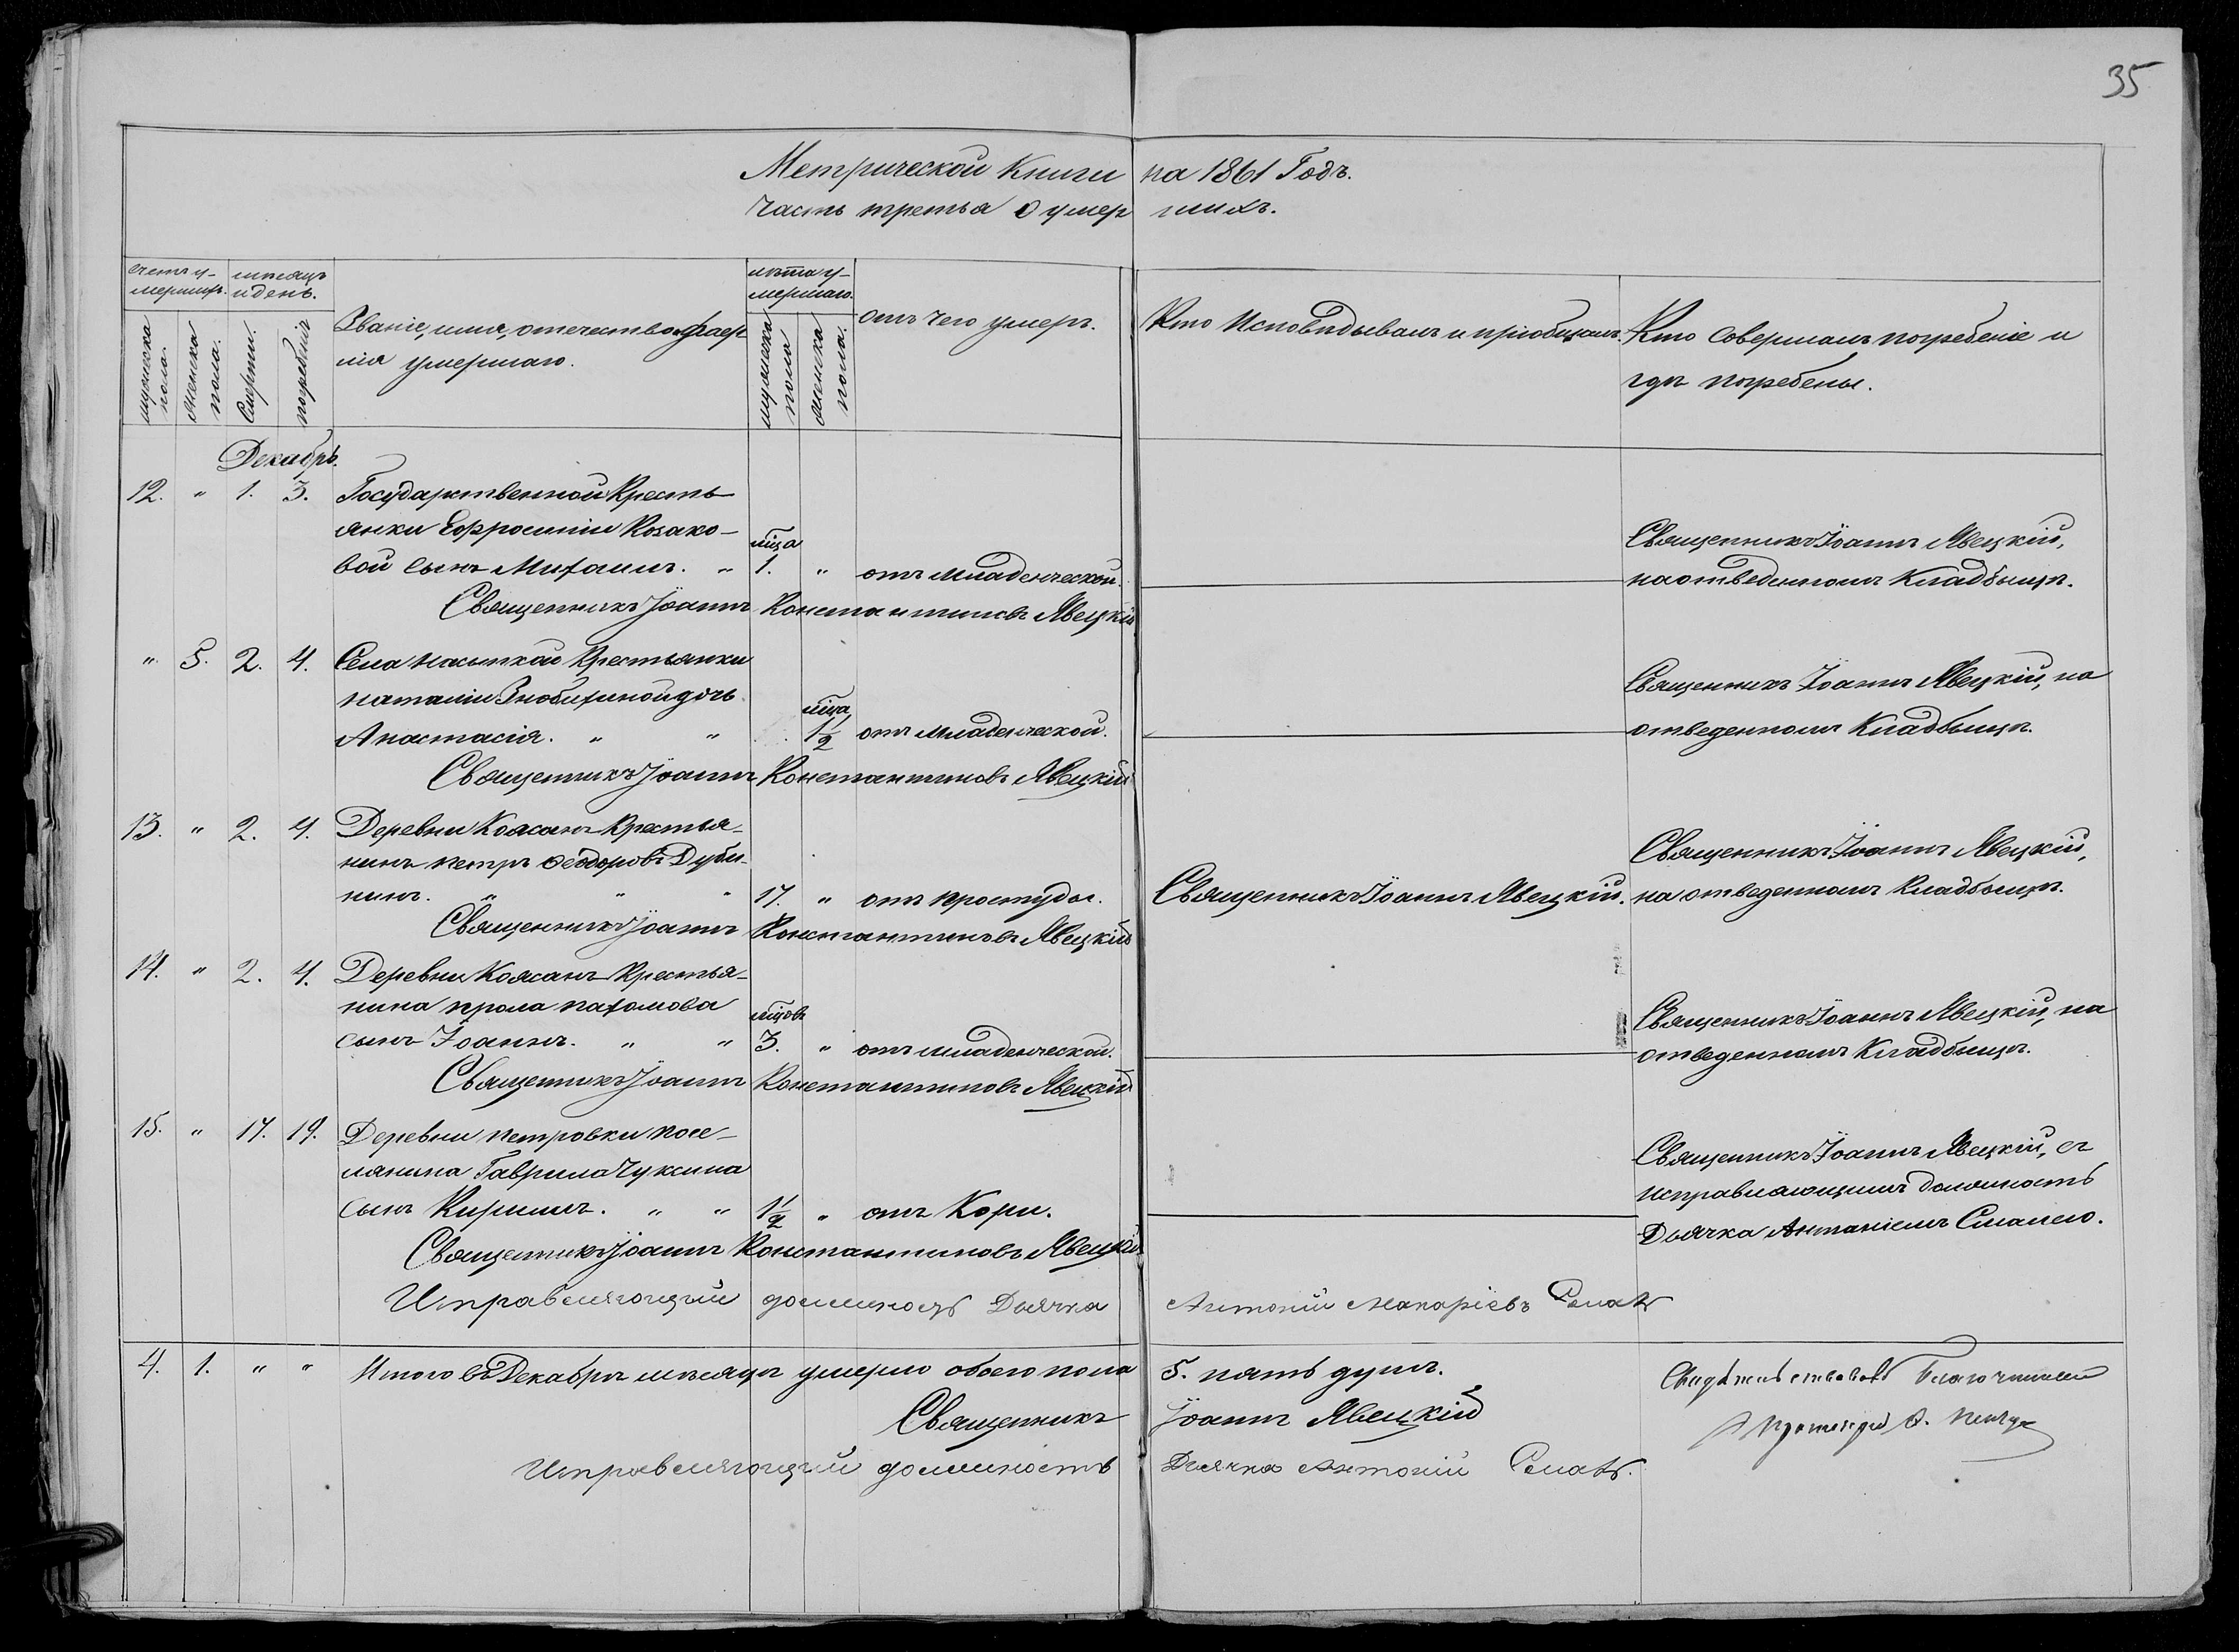 35
Метрической Книги на 1861 Годъ.
Часть третья о умер шихъ.
счетъ у-
мершихъ.
мѣсяцъ
и день.
Званіе, имя, отечество и фаер
лія умершаго.
лѣта у-
мершаго.
отъ чего умеръ.
Кто Исповѣдывалъ и пріобщалъ.
Кто Совершалъ погребеніе и
гдѣ погребены.
мужеска
пола.
женска
пола.
Смерти.
погребѣнія
мужеска
пола
женска
пола.
Декабрь.
12. " 1. 3. Государственной Кресть-
янки Ефросиніи Козако-
вой сынъ Михаилъ. "
мца
1. " отъ младенческой.
Священникъ Іоаннъ Явецкій,
на отведенномъ Кладбищѣ.
Священникъ Іоаннъ Константиновъ Явецкій
". 5. 2. 4. Села Насыпкой Крестьянки
Наталіи дочь
Анастасія. " "
мца
1½ отъ младенческой.
Священникъ Іоаннъ Явецкій, на
отведенномъ Кладбищѣ.
Священникъ Іоаннъ Константиновъ Явецкій
13. " 2. 4. Деревни Коясанъ Крестья-
нинъ Петръ Ѳеодоровъ Дуби-
нинъ. " " "
17. " отъ простуды.
Священникъ Іоаннъ Явецкій.
Священникъ Іоаннъ Явецкій,
на отведенномъ Кладбищѣ.
Священникъ Іоаннъ Константиновъ Явецкій
14. " 2. 4. Деревни Коясанъ Крестья-
нина Фрола Пахомова
сынъ Іоаннъ. " "
мцовъ
3. " отъ младенческой.
Священникъ Іоаннъ Явецкій, на
отведенномъ Кладбищѣ.
Священникъ Іоаннъ Константиновъ Явецкій
15. " 17. 19. Деревни Петровки посе-
лянина Гаврила Чуксина
сынъ Кирилъ. " "
1½ " отъ Кори.
Священникъ Іоаннъ Явецкій, съ
исправляющимъ должность
Дьячка Антоніемъ
Священникъ Іоаннъ Константиновъ Явецкій
Исправляющий должность Дьячка Антоній Макаріевъ
4. 1. " " Итого въ Декабрѣ мѣсяцѣ умерло обоего пола 5. пять душъ.
Священникъ Іоаннъ Явецкій
Исправляющий должность Дьячка Антоній
Свидѣтельствовалъ Благочинный
Протоіерей